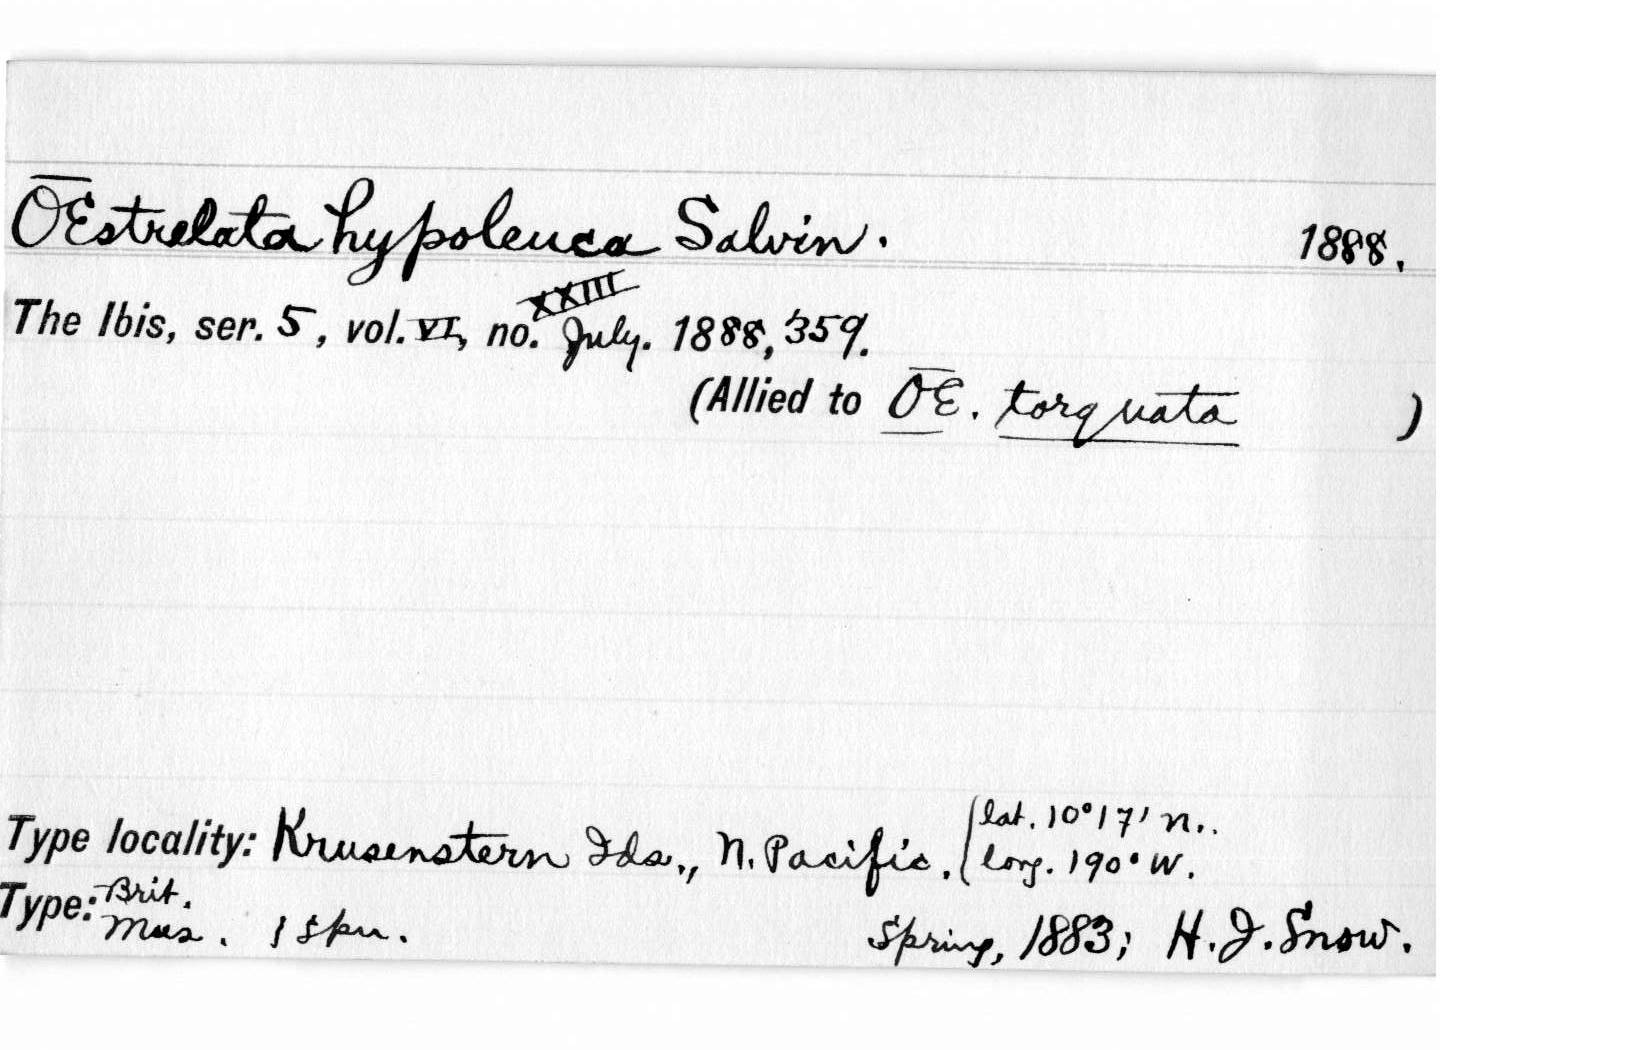 ŌĒstrelata hypoleuca Salvin. 1888.
The Ibis, ser. 5, vol. VI, no. XXIII July. 1888, 359.
(Allied to ŌE. torquata )
Type locality: Krusenstern Ids., N. Pacific. (lat. 10°17' N..
long. 190° W.
Type: Brit.
Mus. 1 spn. Spring, 1883; H. J. Snow.